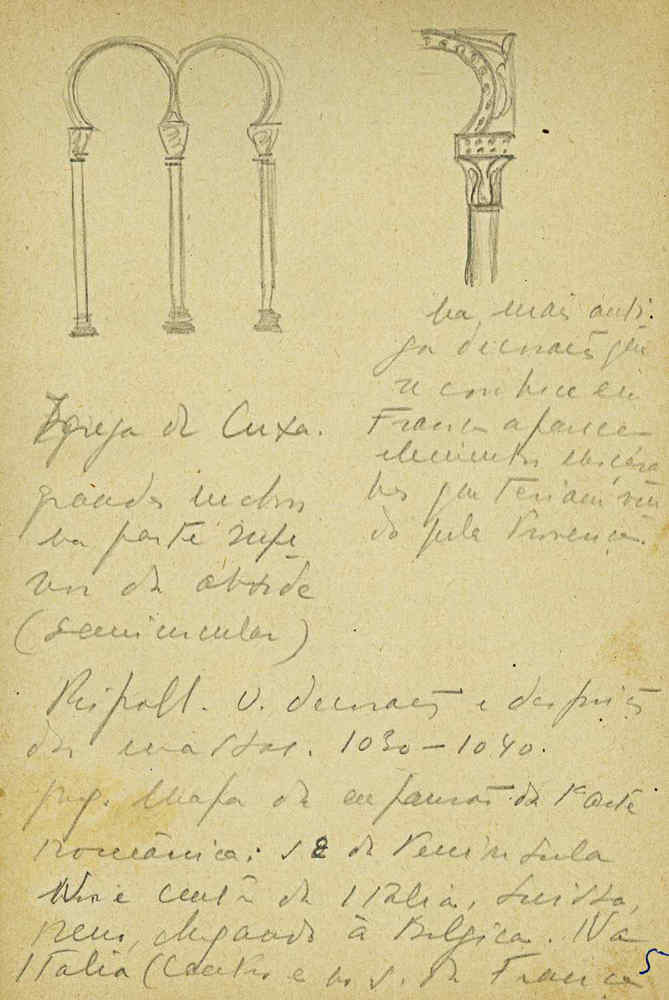 Igreja de Cuxa.
grandes nichos
na parte supe
rior da abside
(semicircular)
na mais anti
ga decoração que
se conhece em
França aparece
elementos
que teriam vin
do pela Provença.
Ripoll. v. decoração e
das massas. 1030-1040.
Mapa da expansão da 1ª arte
românica: SE da Península
N e centro da Italia, Suissa,
Reno, chegando à Belgica. Na
Italia (Centro e no S. da França
5